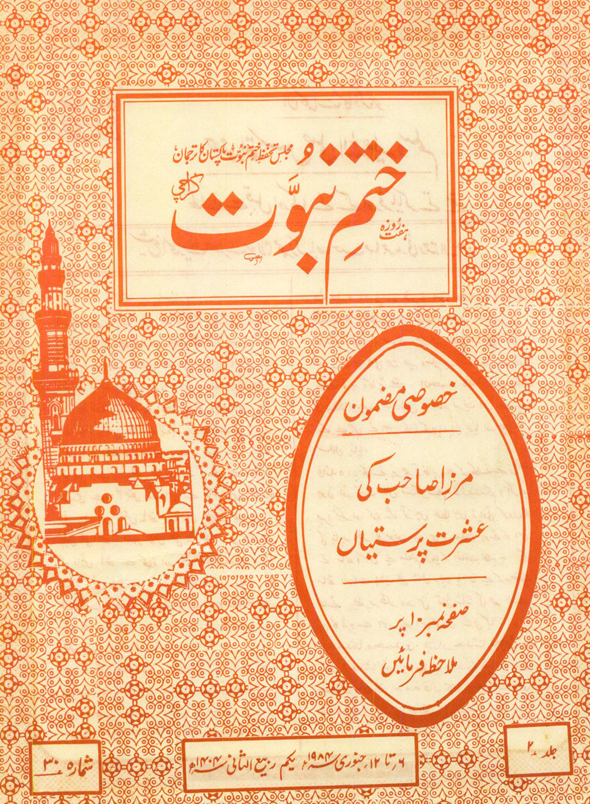 مجلس تحفظ ختم نبوت پاکستان کا ترجمان
ہفت روزہ
ختم نبوّت
کراچی
خصوصی مضمون
مرزا صاحب کی
عشرت پرستیاں
صفحہ نمبر ۱۰ پر
ملاحظہ فرمائیں
جلد ۲
۶ تا ۱۲ جنوری ۱۹۸۴ء یکم ربیع الثانی ۱۴۰۴ھ
شمارہ ۳۰